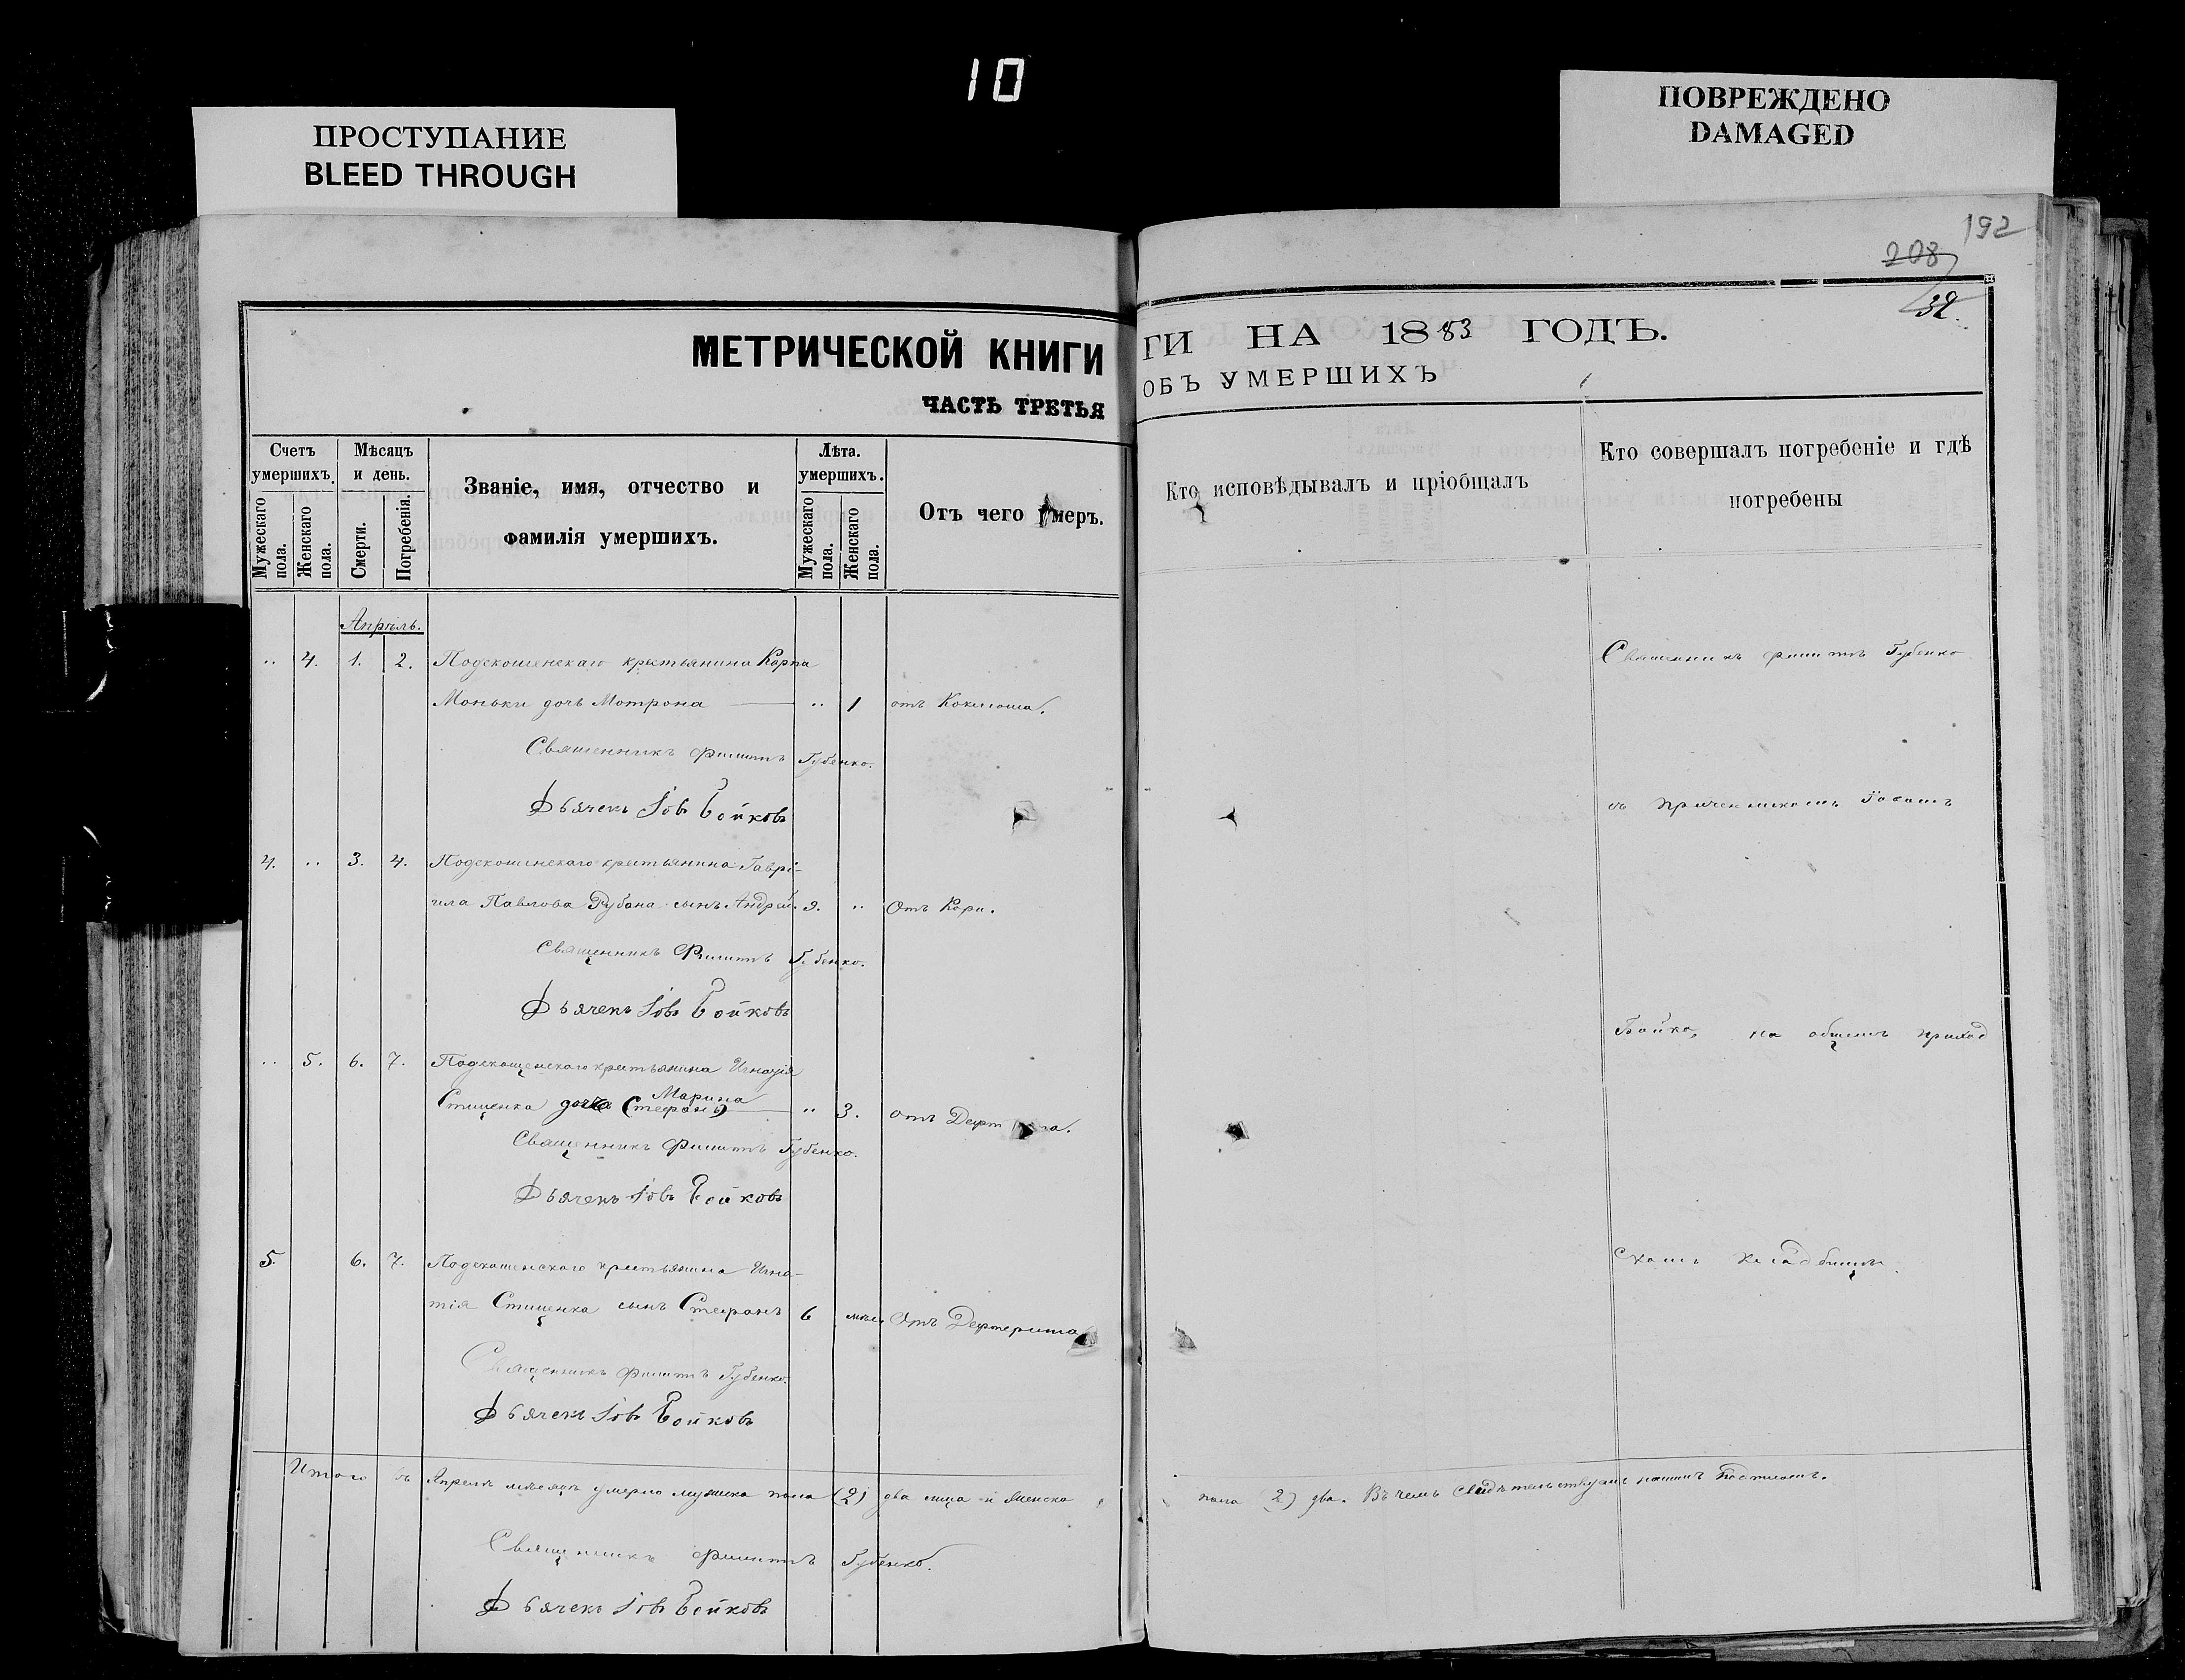 10
ПРОСТУПАНИЕ
BLEED THROUGH
ПОВРЕЖДЕНО
DAMAGED
192
208
32.
МЕТРИЧЕСКОЙ КНИГИ
ЧАСТЬ ТРЕТЬЯ
Счетъ умершихъ.
Мужескаго пола.
Женскаго пола.
Мѣсяцъ и день.
Смерти.
Погребенія.
Званіе, имя, отчество и
фамилія умершихъ.
Лѣта. умершихъ.
Мужескаго пола.
Женскаго пола.
Отъ чего умеръ.
Апрѣль.
.. 4. 1. 2. крестьянина Карпа
Моньки дочь Мотрона .. 1 отъ Коклюша.
Священникъ Филиппъ Губенко.
Дьячекъ Іовъ Бойковъ
4. .. 3. 4. крестьянина Гаврі-
ила Павлова Рубана сынъ Андрей. .. Отъ Кори.
Священникъ Филиппъ Губенко.
Дьячекъ Іовъ Бойковъ
.. 5. 6. 7. крестьянина Игнатія
Марина
Стиценка дочь (Стефанъ) .. 3. отъ
Священникъ Филиппъ Губенко.
Дьячекъ Іовъ Бойковъ
5. 6. 7. крестьянина Игна-
тія Стиценка сынъ Стефанъ 6 мѣс. Отъ Дефтерита
Священникъ Филиппъ Губенко.
Дьячекъ Іовъ Бойковъ
Итого въ Апрелѣ мѣсяцѣ умерло мужеска пола (2) два лица и женска
Священникъ Филиппъ Губенко.
Дьячекъ Іовъ Бойковъ
ГИ НА 1883 ГОДЪ.
ОБЪ УМЕРШИХЪ
Кто исповѣдывалъ и пріобщалъ
Кто совершалъ погребеніе и гдѣ
погребены
Священникъ Филиппъ Губенко
съ причетникомъ Іовомъ
Бойко, на общемъ приход
скомъ кладбищѣ.
пола (2) два. Въ чемъ свидѣтельствуемъ нашимъ подписомъ.